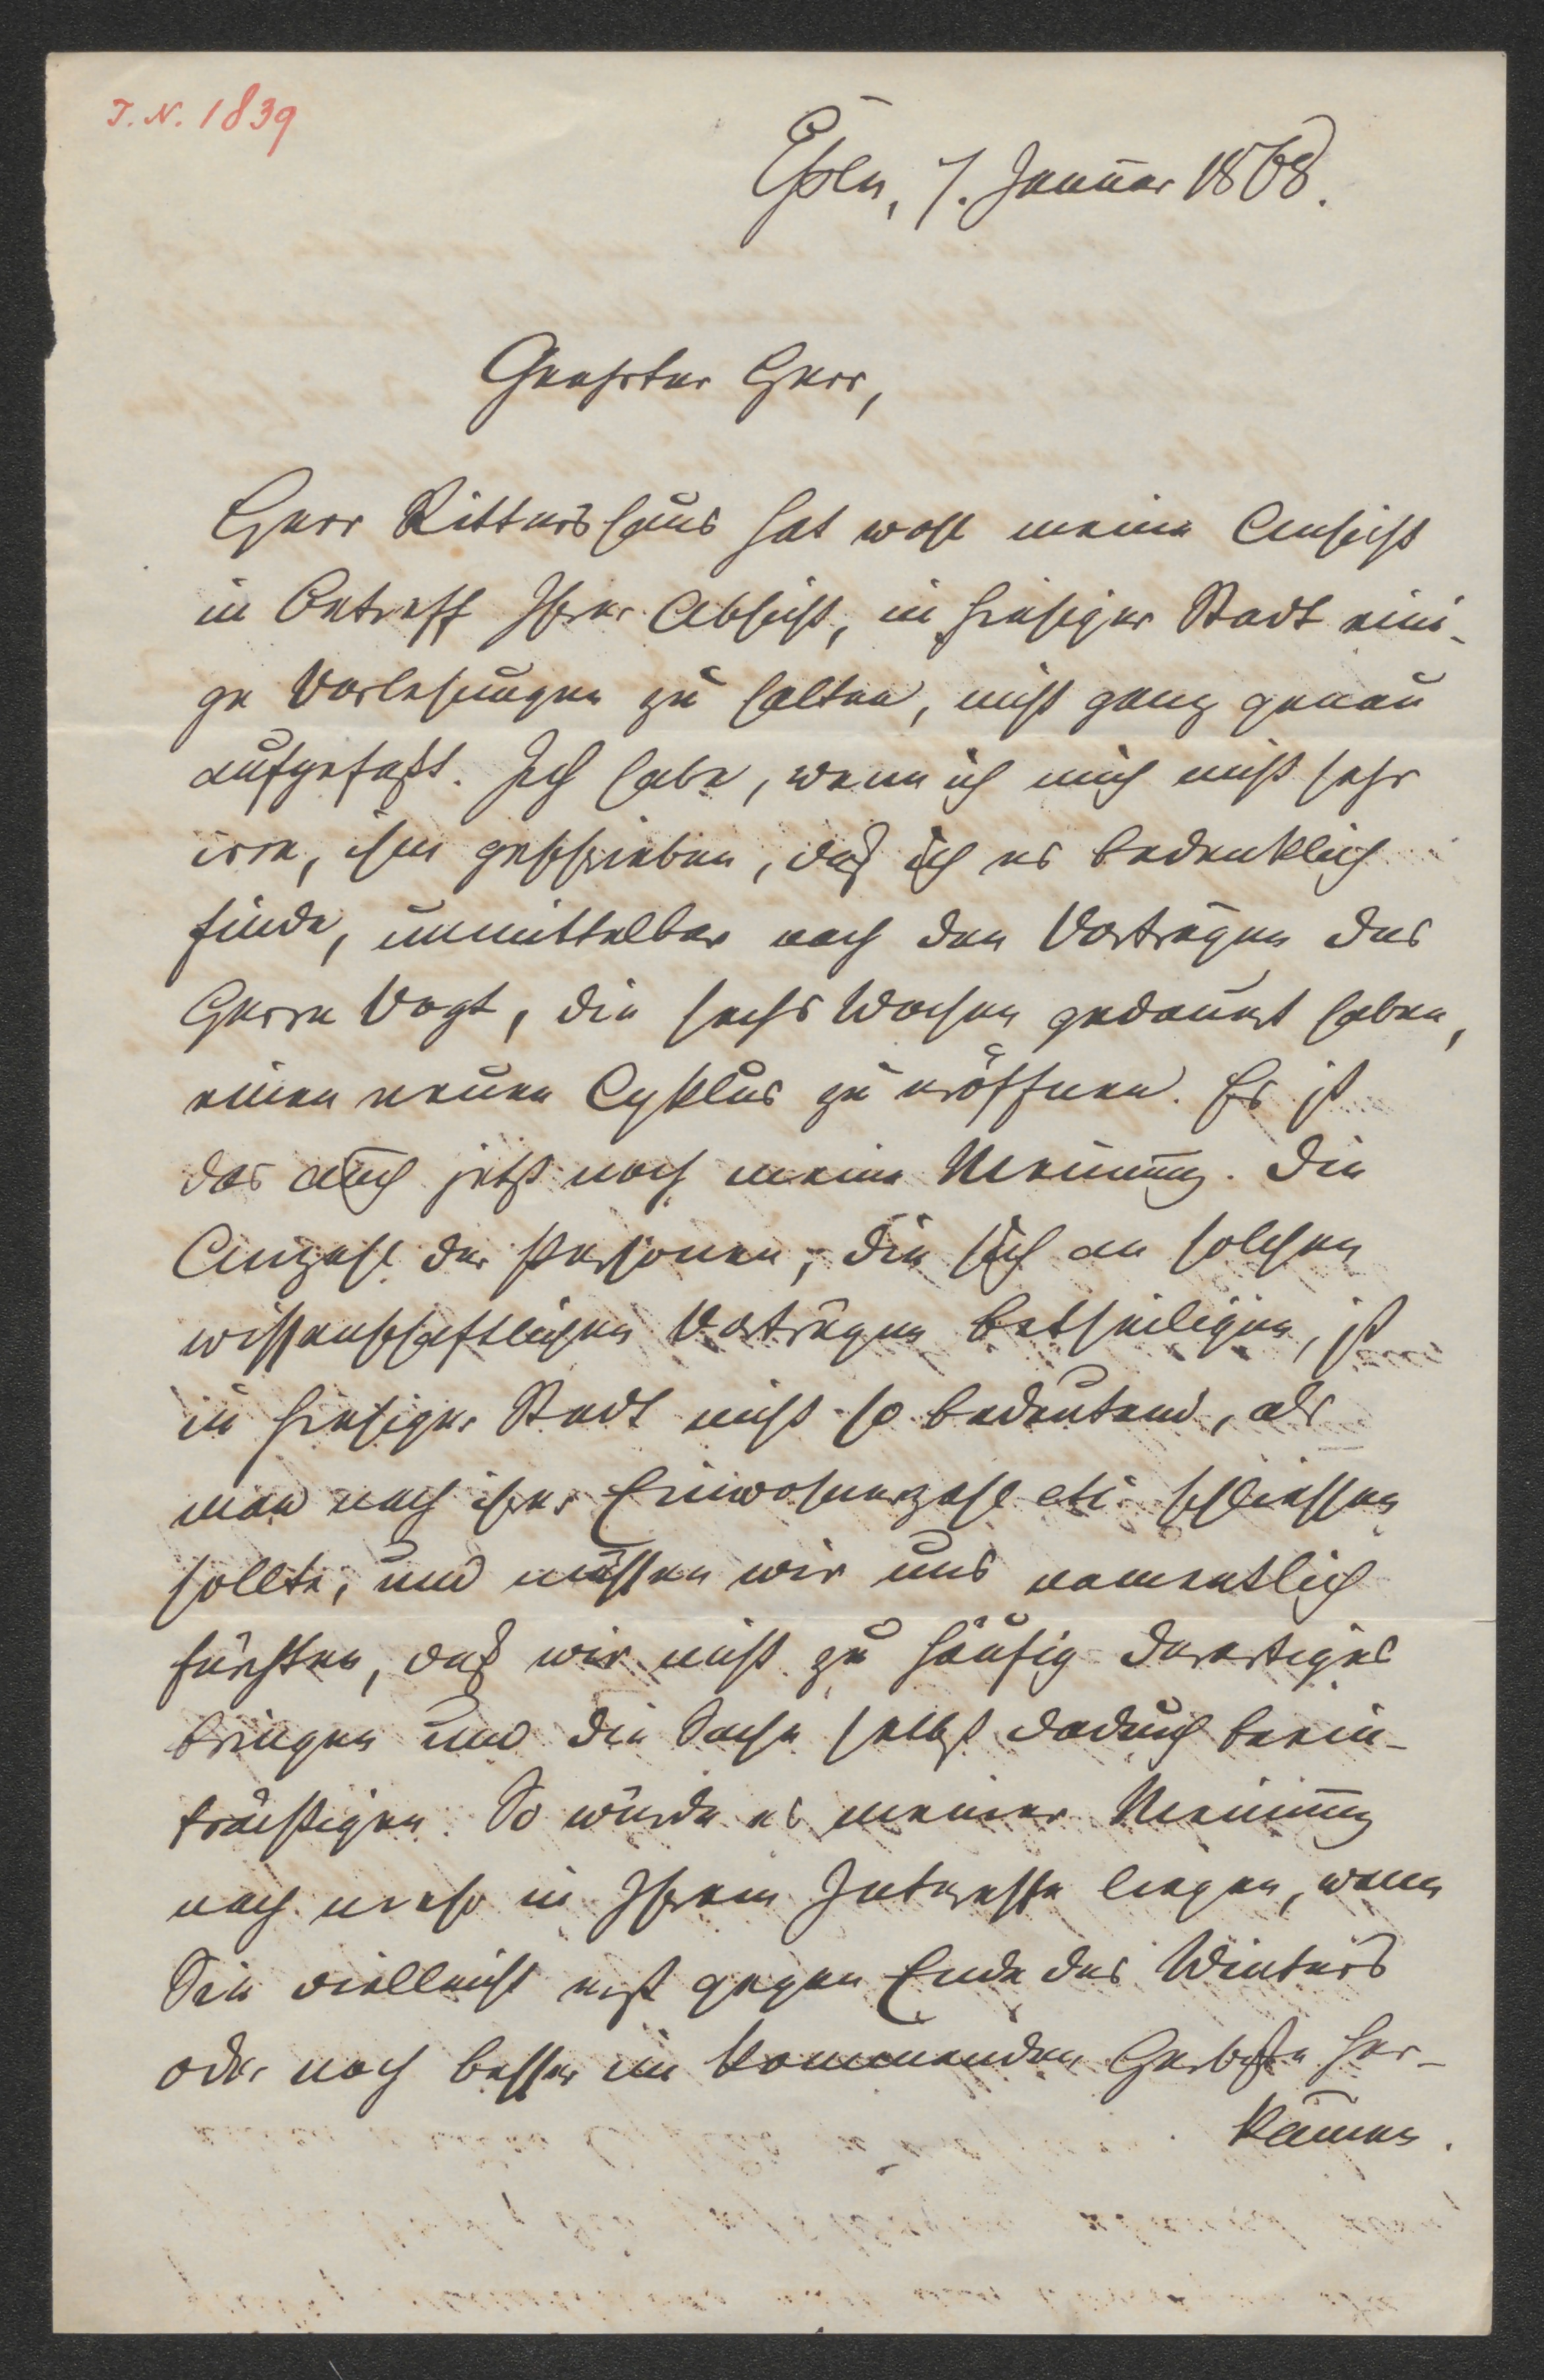 J. N. 1839
Cöln, 7. Januar 1868.
Geehrter Herr,
Herr Rittershaus hat wohl meine Ansicht
in Betreff Ihrer Absicht, in hiesiger Stadt eini-
ge Vorlesungen zu halten, nicht ganz genau
aufgefaßt. Ich habe, wenn ich mich nicht sehr
irre, ihm geschrieben, daß ich es bedenklich
finde, unmittelbar nach den Vorträgen des
Herrn Vogt, die sechs Wochen gedauert haben,
einen neuen Cyklus zu eröffnen. Es ist
das auch jetzt noch meine Meinung. Die
Anzahl der Personen, die sich an solchen
wissenschaftlichen Vorträgen betheiligen, ist
in hiesiger Stadt nicht so bedeutend, als
man nach ihrer Einwohnerzahl etc. schliessen
sollte, und müssen wir uns namentlich
fürchten, daß wir nicht zu häufig derartiges
bringen und die Sache selbst dadurch beein-
trächtigen. So würde es meiner Meinung
nach in Ihrem Interesse liegen, wenn
Sie vielleicht erst gegen Ende des Winters
oder noch besser im kommenden Herbste her-
kämen.